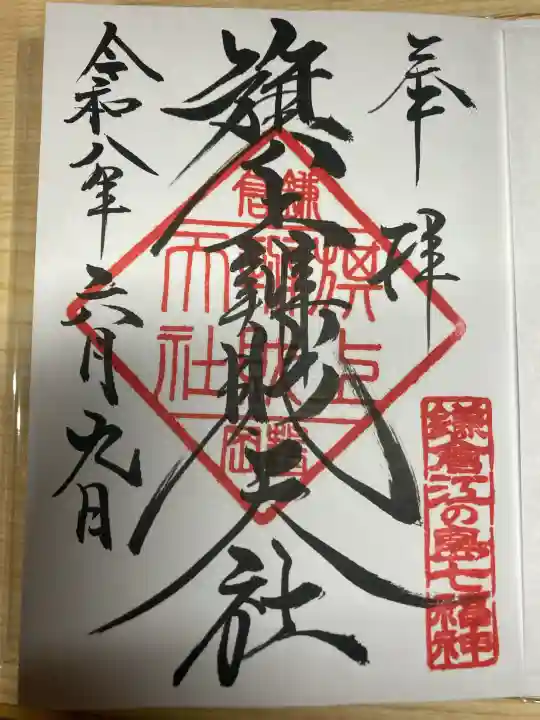 奉拝
鎌倉江の島七福神
旗上辨財天社
鎌倉
旗上
辨財
天社
令和八年六月九日